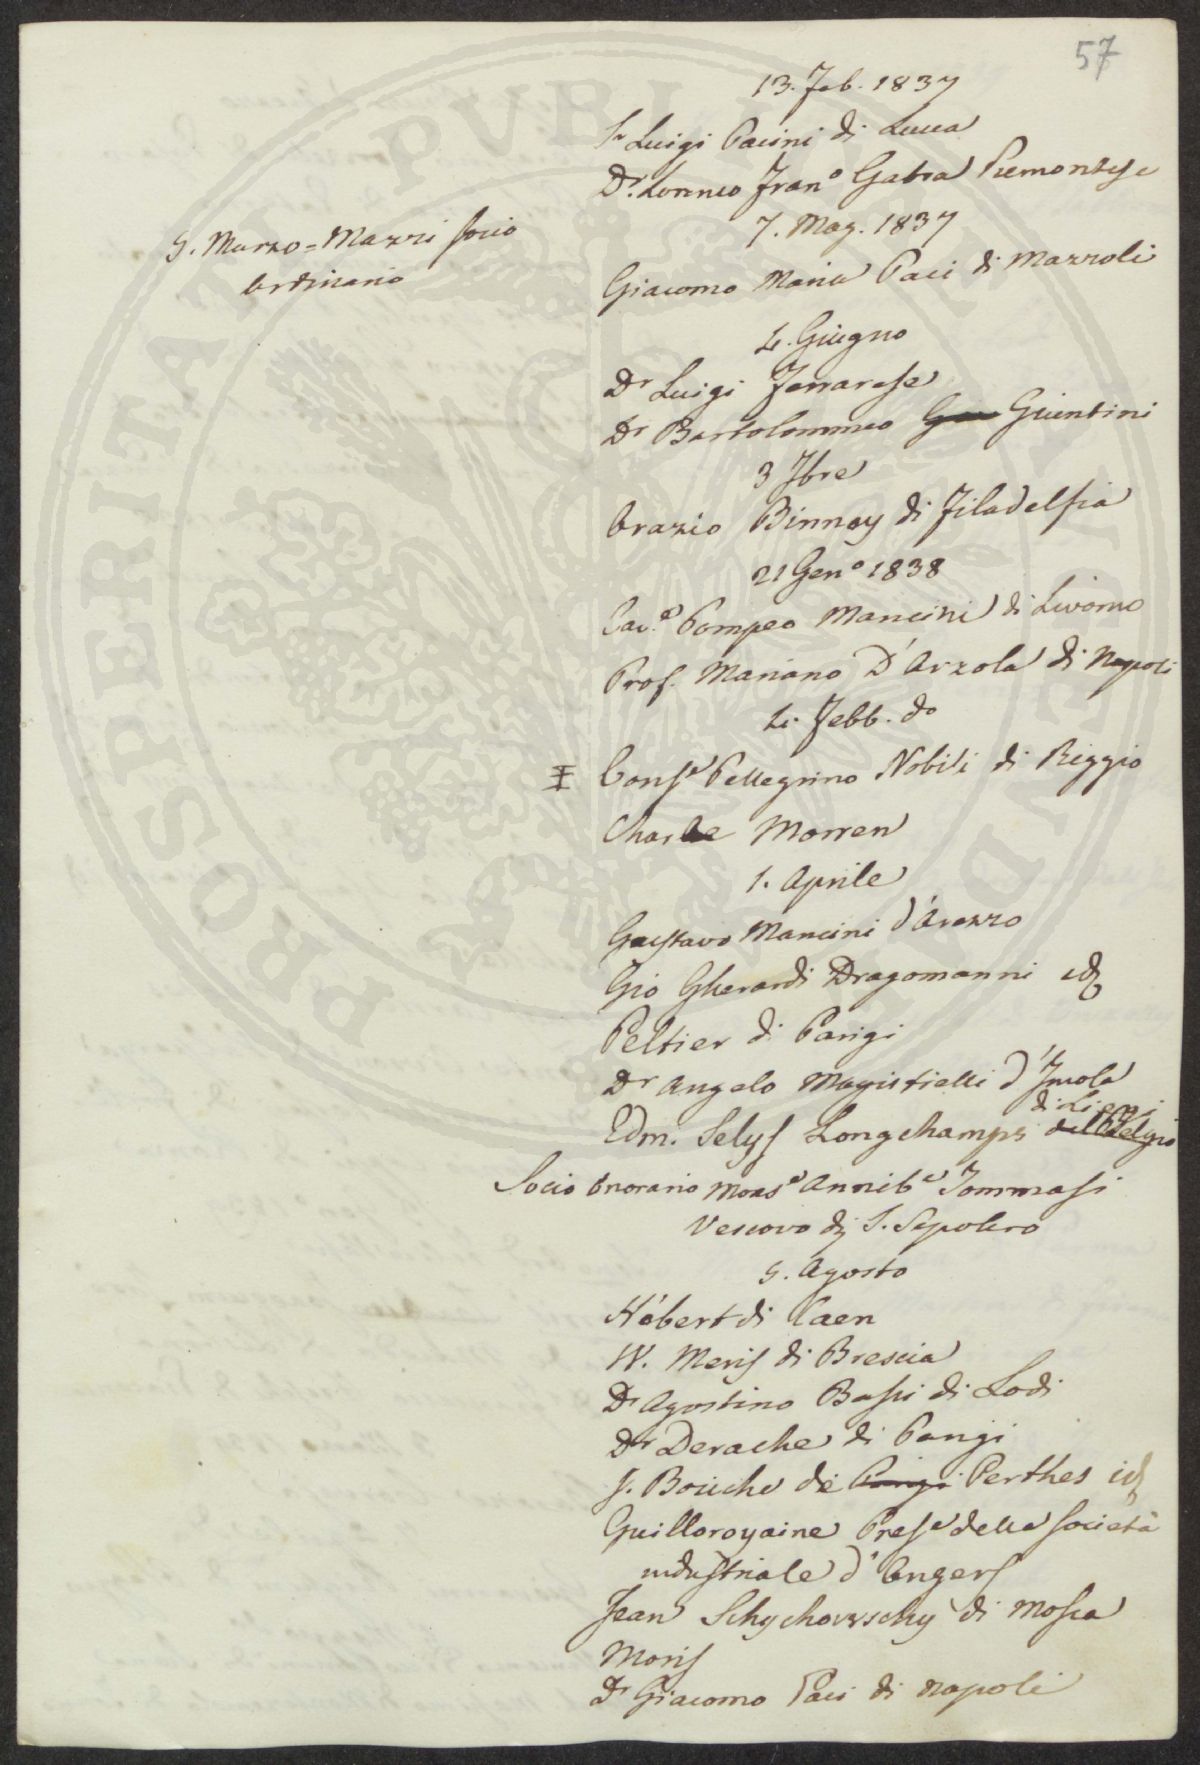 57
13. Feb. 1837
Sr Luigi Pacini di Lucca
Dr. Lorenzo Franº Gatta Piemontese
7. Mag. 1837
5. Marzo = Mazzi socio
ordinario
Giacomo Maria Paci di Mazzoli
4. Giugno
Dr Luigi Ferrarese
Dr Bartolommeo Giuntini
3 7bre
Orazio Binney di Filadelfia
21 Genº 1838
Cav.e Pompeo Mancini di Livorno
Prof. Mariano D'Arzola di Napoli
4. Febb. dº
Conse Pellegrino Nobili di Reggio
Charle Morren
1. Aprile
Gustavo Mancini d'Arezzo
Gio Gherardi Dragomanni id
Peltier di Parigi
Dr Angelo Magistrelli d'Imola
di Liegi
Edm. Selys Longchamps del Belgio
Socio Onorario Monse Annibe Tommasi
Vescovo di S. Sepolcro
5. Agosto
Hébert di Caen
W. Meris di Brescia
Dr Agostino Bassi di Lodi
Dr Derache di Parigi
J. Bouche de Parigi Perthes id
Guilloroyaine Prese della Società
industriale d'Angers
Jean Schychowschy di Mosca
Moris
Dr Giacomo Paci di Napoli
PROSPERITATI PVBLICAE AVGENDAE